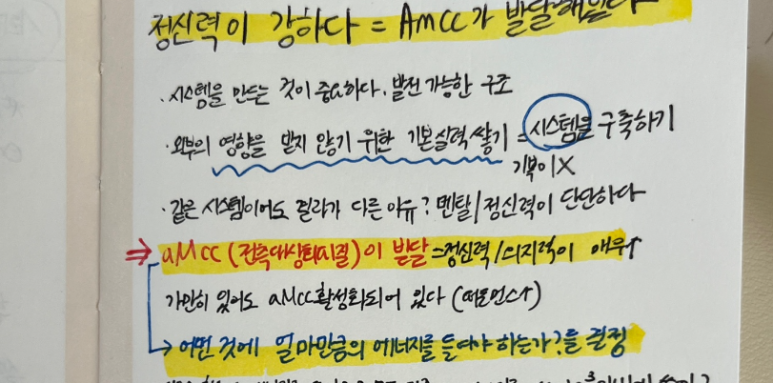 정신력이 강하다 = AMCC가 발달해있다
· 시스템을 만드는 것이 중요하다. 발전 가능한 구조
· 외부의 영향을 받지 않기 위한 기본실력 쌓기 = 시스템을 구축하기
기복이 X
· 같은 시스템이어도 결과가 다른 이유? 멘탈/정신력이 단단하다
⇒ aMcc (전측대상피질)이 발달 = 정신력/의지력이 매우↑
가만히 있어도 aMcc활성화되어 있다 (퍼포먼스↑)
→ 어떤 것에 얼마만큼의 에너지를 들여야 하는가?를 결정